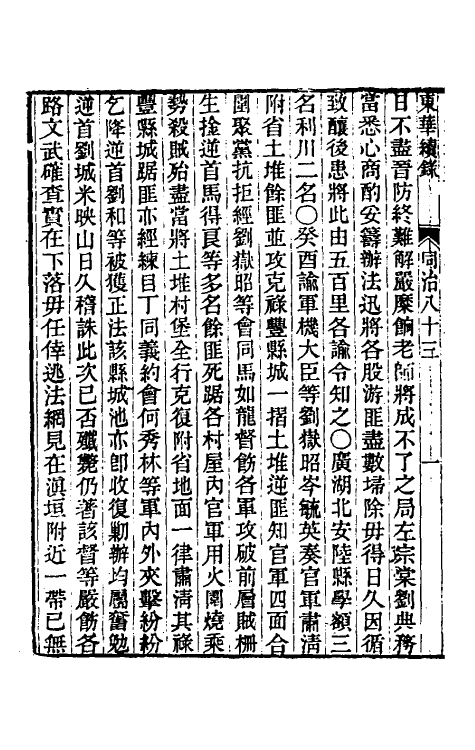 東華續錄　同治八十三　一
日不盡晉防終難解嚴糜餉老師將成不了之局左宗棠劉典務
當悉心商酌妥籌辦法迅將各股游匪盡數埽除毋得日久因循
致釀後患將此由五百里各諭令知之〇廣湖北安陸縣學額三
名利川二名〇癸酉諭軍機大臣等劉嶽昭岑毓英奏官軍肅清
附省土堆餘匪並攻克祿豐縣城一摺土堆逆匪知官軍四面合
圍聚黨抗拒經劉嶽昭等會同馬如龍督飭各軍攻破前層賊柵
生擒逆首馬得良等多名餘匪死踞各村屋內官軍用火圍燒乘
勢殺賊殆盡當將土堆村堡全行克復附省地面一律肅清其祿
豐縣城踞匪亦經練目丁同義約會何秀林等軍內外夾擊紛紛
乞降逆首劉和等被獲正法該縣城池亦卽收復勦辦均屬奮勉
逆首劉城米映山日久稽誅此次已否殲斃仍著該督等嚴飭各
路文武確查實在下落毋任倖逃法網見在滇垣附近一帶已無